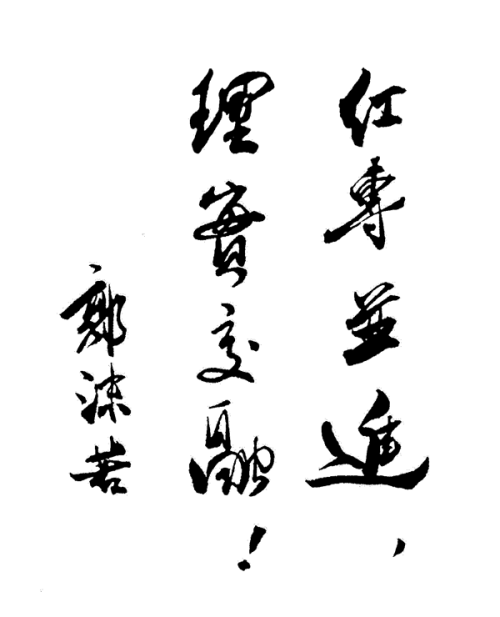 红專並進，
理實交融！
郭沫若